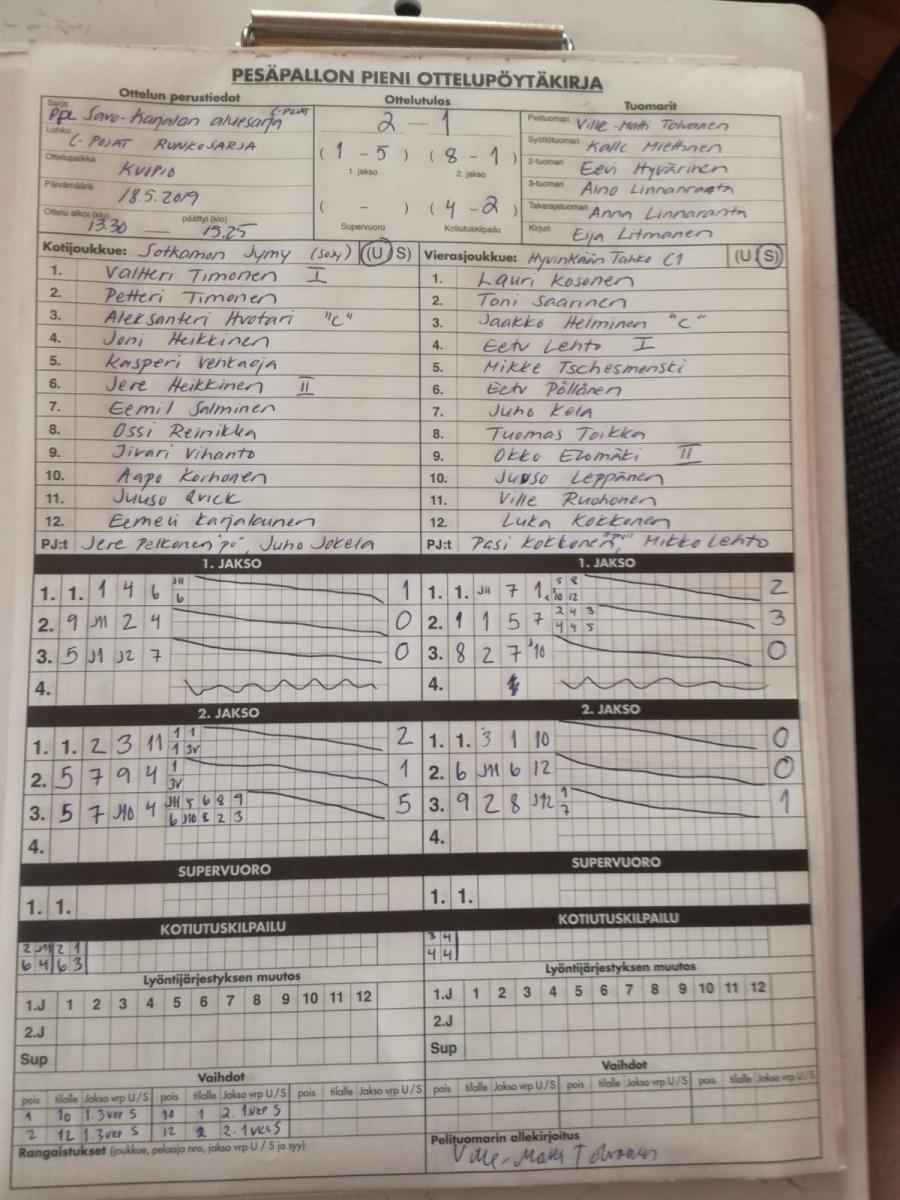 PESÄPALLON PIENI OTTELUPÖYTÄKIRJA
Ottelun perustiedot
Sarja PPL Savo-Karjalan aluesarja C-POJAT
Lohko C-POJAT RUNKOSARJA
Ottelupaikka KUOPIO
Päivämäärä 18.5.2019
Ottelu alkoi (klo) päättyi (klo)
13.30 — 15.25
Ottelutulos
2 — 1
( 1 - 5 ) ( 8 - 1 )
1. jakso 2. jakso
( - ) ( 4 - 2 )
Supervuoro Kotiutuskilpailu
Tuomarit
Pelituomari Ville-Matti Tolvanen
Syöttötuomari Kalle Miettinen
2-tuomari Eevi Hyvärinen
3-tuomari Aino Linnanranta
Takarajatuomari Anna Linnaranta
Kirjuri Eija Litmanen
Kotijoukkue: Sotkamon Jymy (U S)
1. Valtteri Timonen I
2. Petteri Timonen
3. Aleksanteri Hvotari "C"
4. Joni Heikkinen
5. Kasperi Venkaoja
6. Jere Heikkinen II
7. Eemil Salminen
8. Ossi Reinikka
9. Jivari Vihanto
10. Aapo Korhonen
11. Juuso Qvick
12. Eemeli Karjalainen
PJ:t Jere Pelkonen "PJ", Juho Jokela
Vierasjoukkue: Hyvinkään Tahko C1 (U S)
1. Lauri Kosonen
2. Toni Saarinen
3. Jaakko Helminen "C"
4. Eetu Lehto I
5. Mikke Tschesmenski
6. Eetu Pöllänen
7. Juho Kela
8. Tuomas Toikka
9. Okko Elomäki II
10. Juuso Leppänen
11. Ville Ruohonen
12. Luka Kokkonen
PJ:t Pasi Kokkonen "PJ", Mikko Lehto
1. JAKSO
1. 1. 1 4 6 J11 6 1
2. 9 J11 2 4 0
3. 5 J1 J2 7 0
4.
2. JAKSO
1. 1. 2 3 11 1 1 2
1 3V
2. 5 7 9 4 1 1
3V
3. 5 7 J10 4 J11 5 6 8 9 5
6 J10 8 2 3
4.
SUPERVUORO
1. 1.
KOTIUTUSKILPAILU
2 J11 2 1
6 4 6 3
Lyöntijärjestyksen muutos
1.J 1 2 3 4 5 6 7 8 9 10 11 12
2.J
Sup
Vaihdot
pois tilalle Jakso vrp U/S pois tilalle Jakso vrp U/S pois tilalle Jakso vrp U/S
1 10 1.3ver S 10 1 2.1ver S
2 12 1.3ver S 12 2 2.1ver S
Rangaistukset (joukkue, pelaaja nro, jakso vrp U / S ja syy)
1. JAKSO
1. 1. J11 7 1 5 8 2
10 12
2. 1 1 5 7 2 4 3 3
4 4 5
3. 8 2 7 10 0
4.
2. JAKSO
1. 1. 3 1 10 0
2. 6 J11 6 12 0
3. 9 2 8 J12 1 1
7
4.
SUPERVUORO
1. 1.
KOTIUTUSKILPAILU
3 4
4 4
Lyöntijärjestyksen muutos
1.J 1 2 3 4 5 6 7 8 9 10 11 12
2.J
Sup
Vaihdot
pois tilalle Jakso vrp U/S pois tilalle Jakso vrp U/S pois tilalle Jakso vrp U/S
Pelituomarin allekirjoitus
Ville-Matti Tolvanen